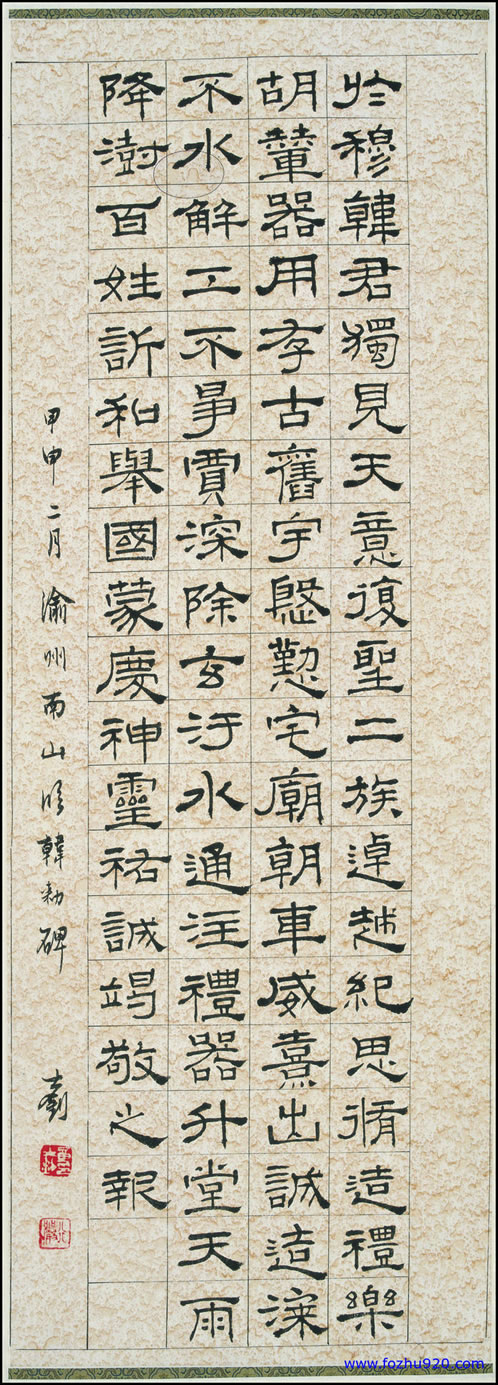 於穆韓君獨見天意復聖二族逴越紀思脩造禮樂
胡輦器用存古舊宇慇懃宅廟朝車威熹出誠造漆
不水解工不爭賈深除玄汙水通注禮器升堂天雨
降澍百姓訢和舉國蒙慶神靈祐誠竭敬之報
甲申二月渝州南山臨韓勅碑
www.fozhu920.com